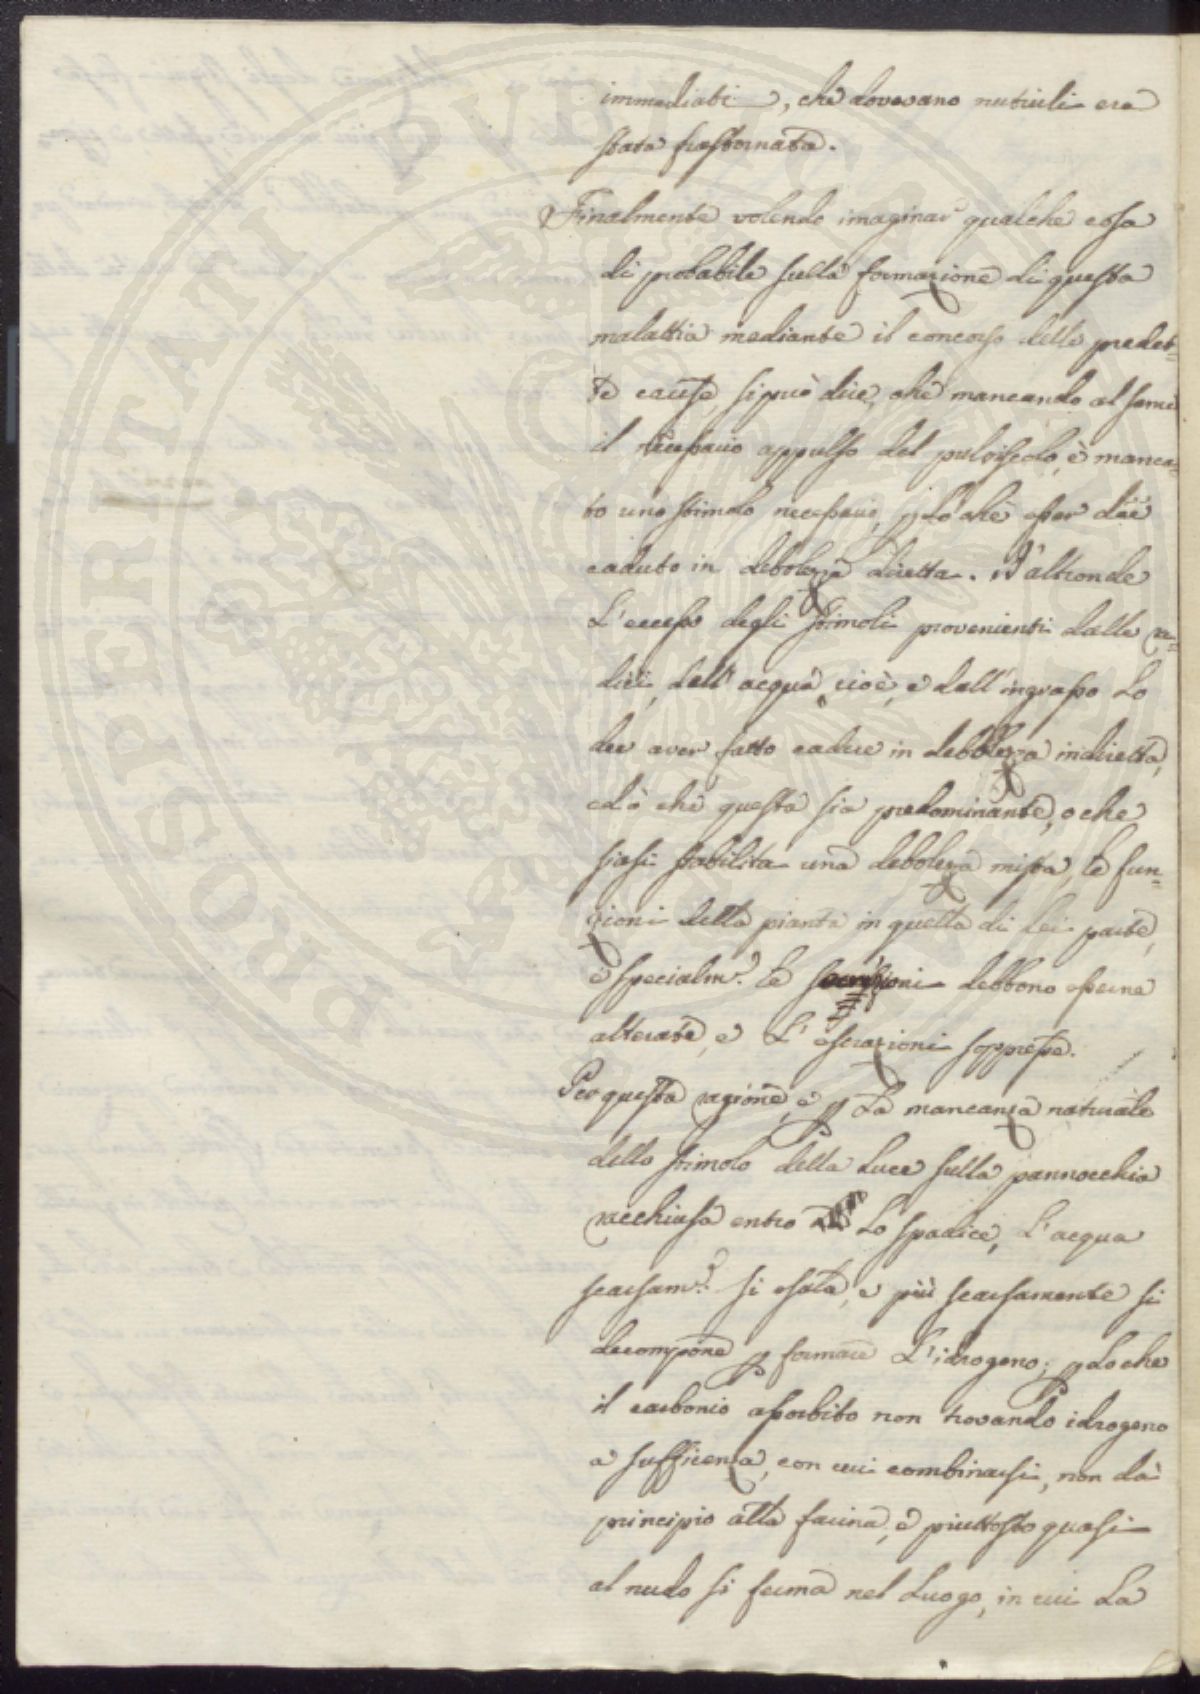 immediati, che dovevano nutrirli era
stata frastornata.
Finalmente volendo imaginar qualche cosa
di probabile sulla formazione di questa
malattia mediante il concorso delle predet-
te cause, si può dire, che mancando al seme
il necessario appulso del pulviscolo, è manca-
to uno stimolo necessario, p lo che esser dèe
caduto in debolezza diretta. D'altronde
L'eccesso degli stimoli provenienti dalle ra-
dici, dall'acqua, cioè, e dall'ingrasso Lo
dee aver fatto cadere in debolezza indiretta,
ed ò che questa sia predominante, o che
siasi stabilita una debolezza mista, le fun-
zioni della pianta in quella di lei parte,
e specialm.e le secrezioni debbono esserne
alterate, e L'escrezioni soppresse.
Per questa ragione, e p La mancanza naturale
dello stimolo della Luce sulla pannocchia
racchiusa entro Lo spadice, L'acqua
scarsam.e si esala, e più scarsamente si
decompone p formare L'idrogeno; p Lo che
il carbonio assorbito non trovando idrogeno
a sufficenza, con cui combinarsi, non dà
principio alla farina, e piuttosto quasi
al nudo si ferma nel Luogo, in cui La
PROSPERITATI PUBLICAE